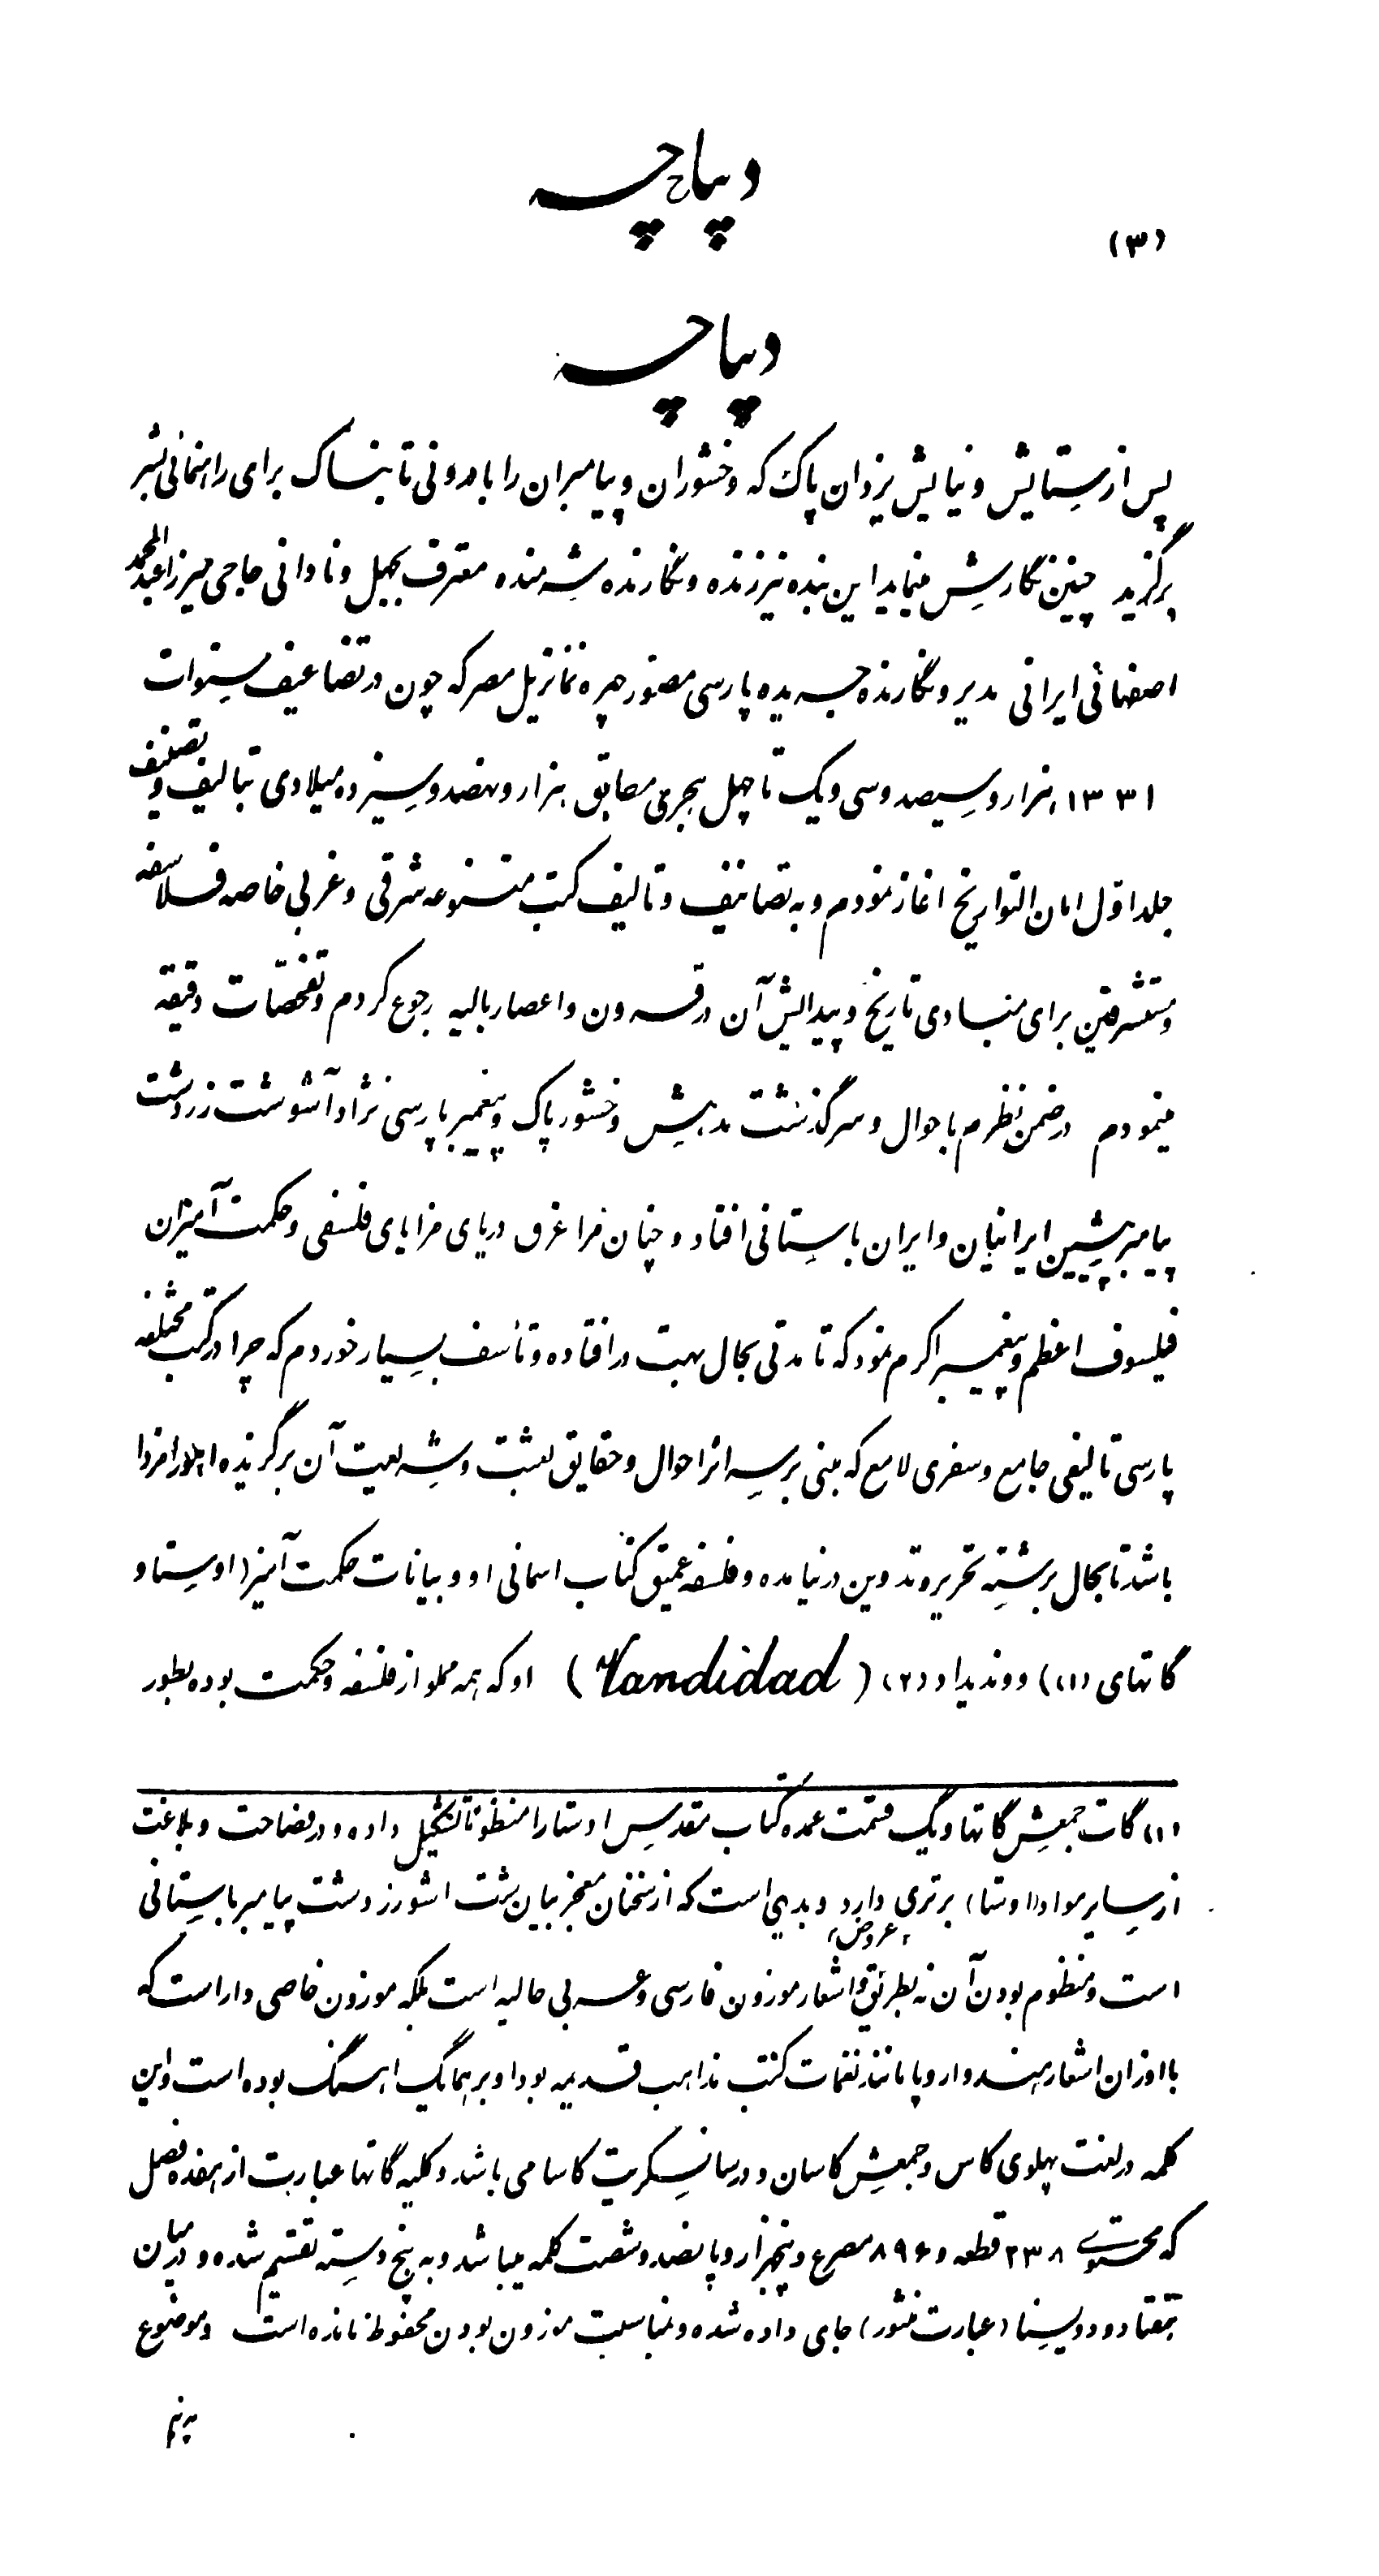 دیباچه
(۳)
دیباچه
پس از ستایش و نیایش یزدان پاک که وخشوران و پیامبران را با درونی تابناک برای راهنمائی بشر
برگزید چنین نگارش مینماید این بنده نیرزنده و نگارنده شرمنده معترف بجهل و نادانی حاجی میرزا عبدالمحمد
اصفهانی ایرانی مدیر و نگارنده جریده پارسی مصور چهره نمانزیل مصر که چون در تضاعیف سنوات
۱۳۳۱ هزار و سیصد و سی و یک تا چهل هجری مطابق هزار و نهصد و سیزده میلادی بتالیف و تصنیف
جلد اوّل امان التواریخ اغاز نمودم و به تصانیف و تالیف کتب متنوعه شرقی و غربی خاصه فلاسفه
و مستشرقین برای مبادی تاریخ و پیدایش آن در قرون و اعصار بالیه رجوع کردم و تفحصّات دقیقه
مینمودم در ضمن نظرم باحوال و سرگذشت مدهش وخشور پاک و پیغمبر پارسی نژاد آشوشت زردشت
پیامبر پیشین ایرانیان و ایران باستانی افتاد و چنان مرا غرق دریای مزایای فلسفی و حکمت آمیز آن
فیلسوف اعظم و پیغمبر اکرم نمود که تا مدتی بحال بهت در افتاده و تأسف بسیار خوردم که چرا در کتب مختلفه
پارسی تالیفی جامع و سفری لامع که مبنی بر سراثر احوال و حقایق بعثت و شریعت آن برگزیده اهورامزدا
باشد تا بحال برشته تحریر و تدوین در نیامده و فلسفه عمیق کتاب اسمانی او و بیانات حکمت آمیز (اوستا و
گاتهای (۱)) و وندیداد (۲) (Vandidad) او که همه مملو از فلسفه و حکمت بوده بطور
(۱) گات جمعش گاتها و یک قسمت عمده کتاب مقدس اوستا را منظوماً تشکیل داده و در فصاحت و بلاغت
از سایر مواد (اوستا) برتری دارد و بدیهی است که از سخنان معجز بیان شت اشو زردشت پیامبر باستانی
است و منظوم بودن آن نه بطریق «عروض» و اشعار موزون فارسی و عربی حالیه است بلکه موزون خاصی دارا است که
با اوزان اشعار هند و اروپا مانند نغمات کتب مذاهب قدیمه بودا و برهما یک اهنگ بوده است و این
کلمه در لغت پهلوی کاس و جمعش کاسان و در سانسکریت کاسا می باشد و کلیه گاتها عبارت از هفده فصل
که محتوی ۲۳۸ قطعه و ۸۹۶ مصرع و پنجهزار و پانصد و شصت کلمه میباشد و به پنج دسته تقسیم شده و درمیان
هفتاد و دو یسنا (عبارت منثور) جای داده شده و بمناسبت موزون بودن محفوظ مانده است و موضوع